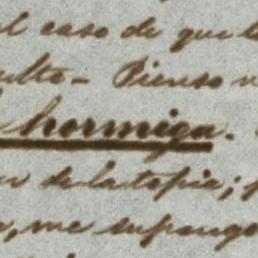 el caso de que l
ulto - Pienso
hormiga.
de la topia;
, me supongo